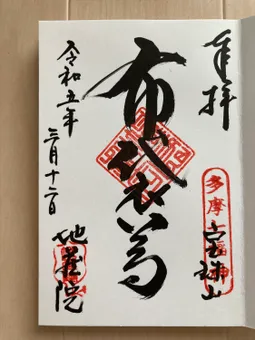 奉拝
多摩
寶珠山
布袋尊
令和五年
三月十二日
地蔵院